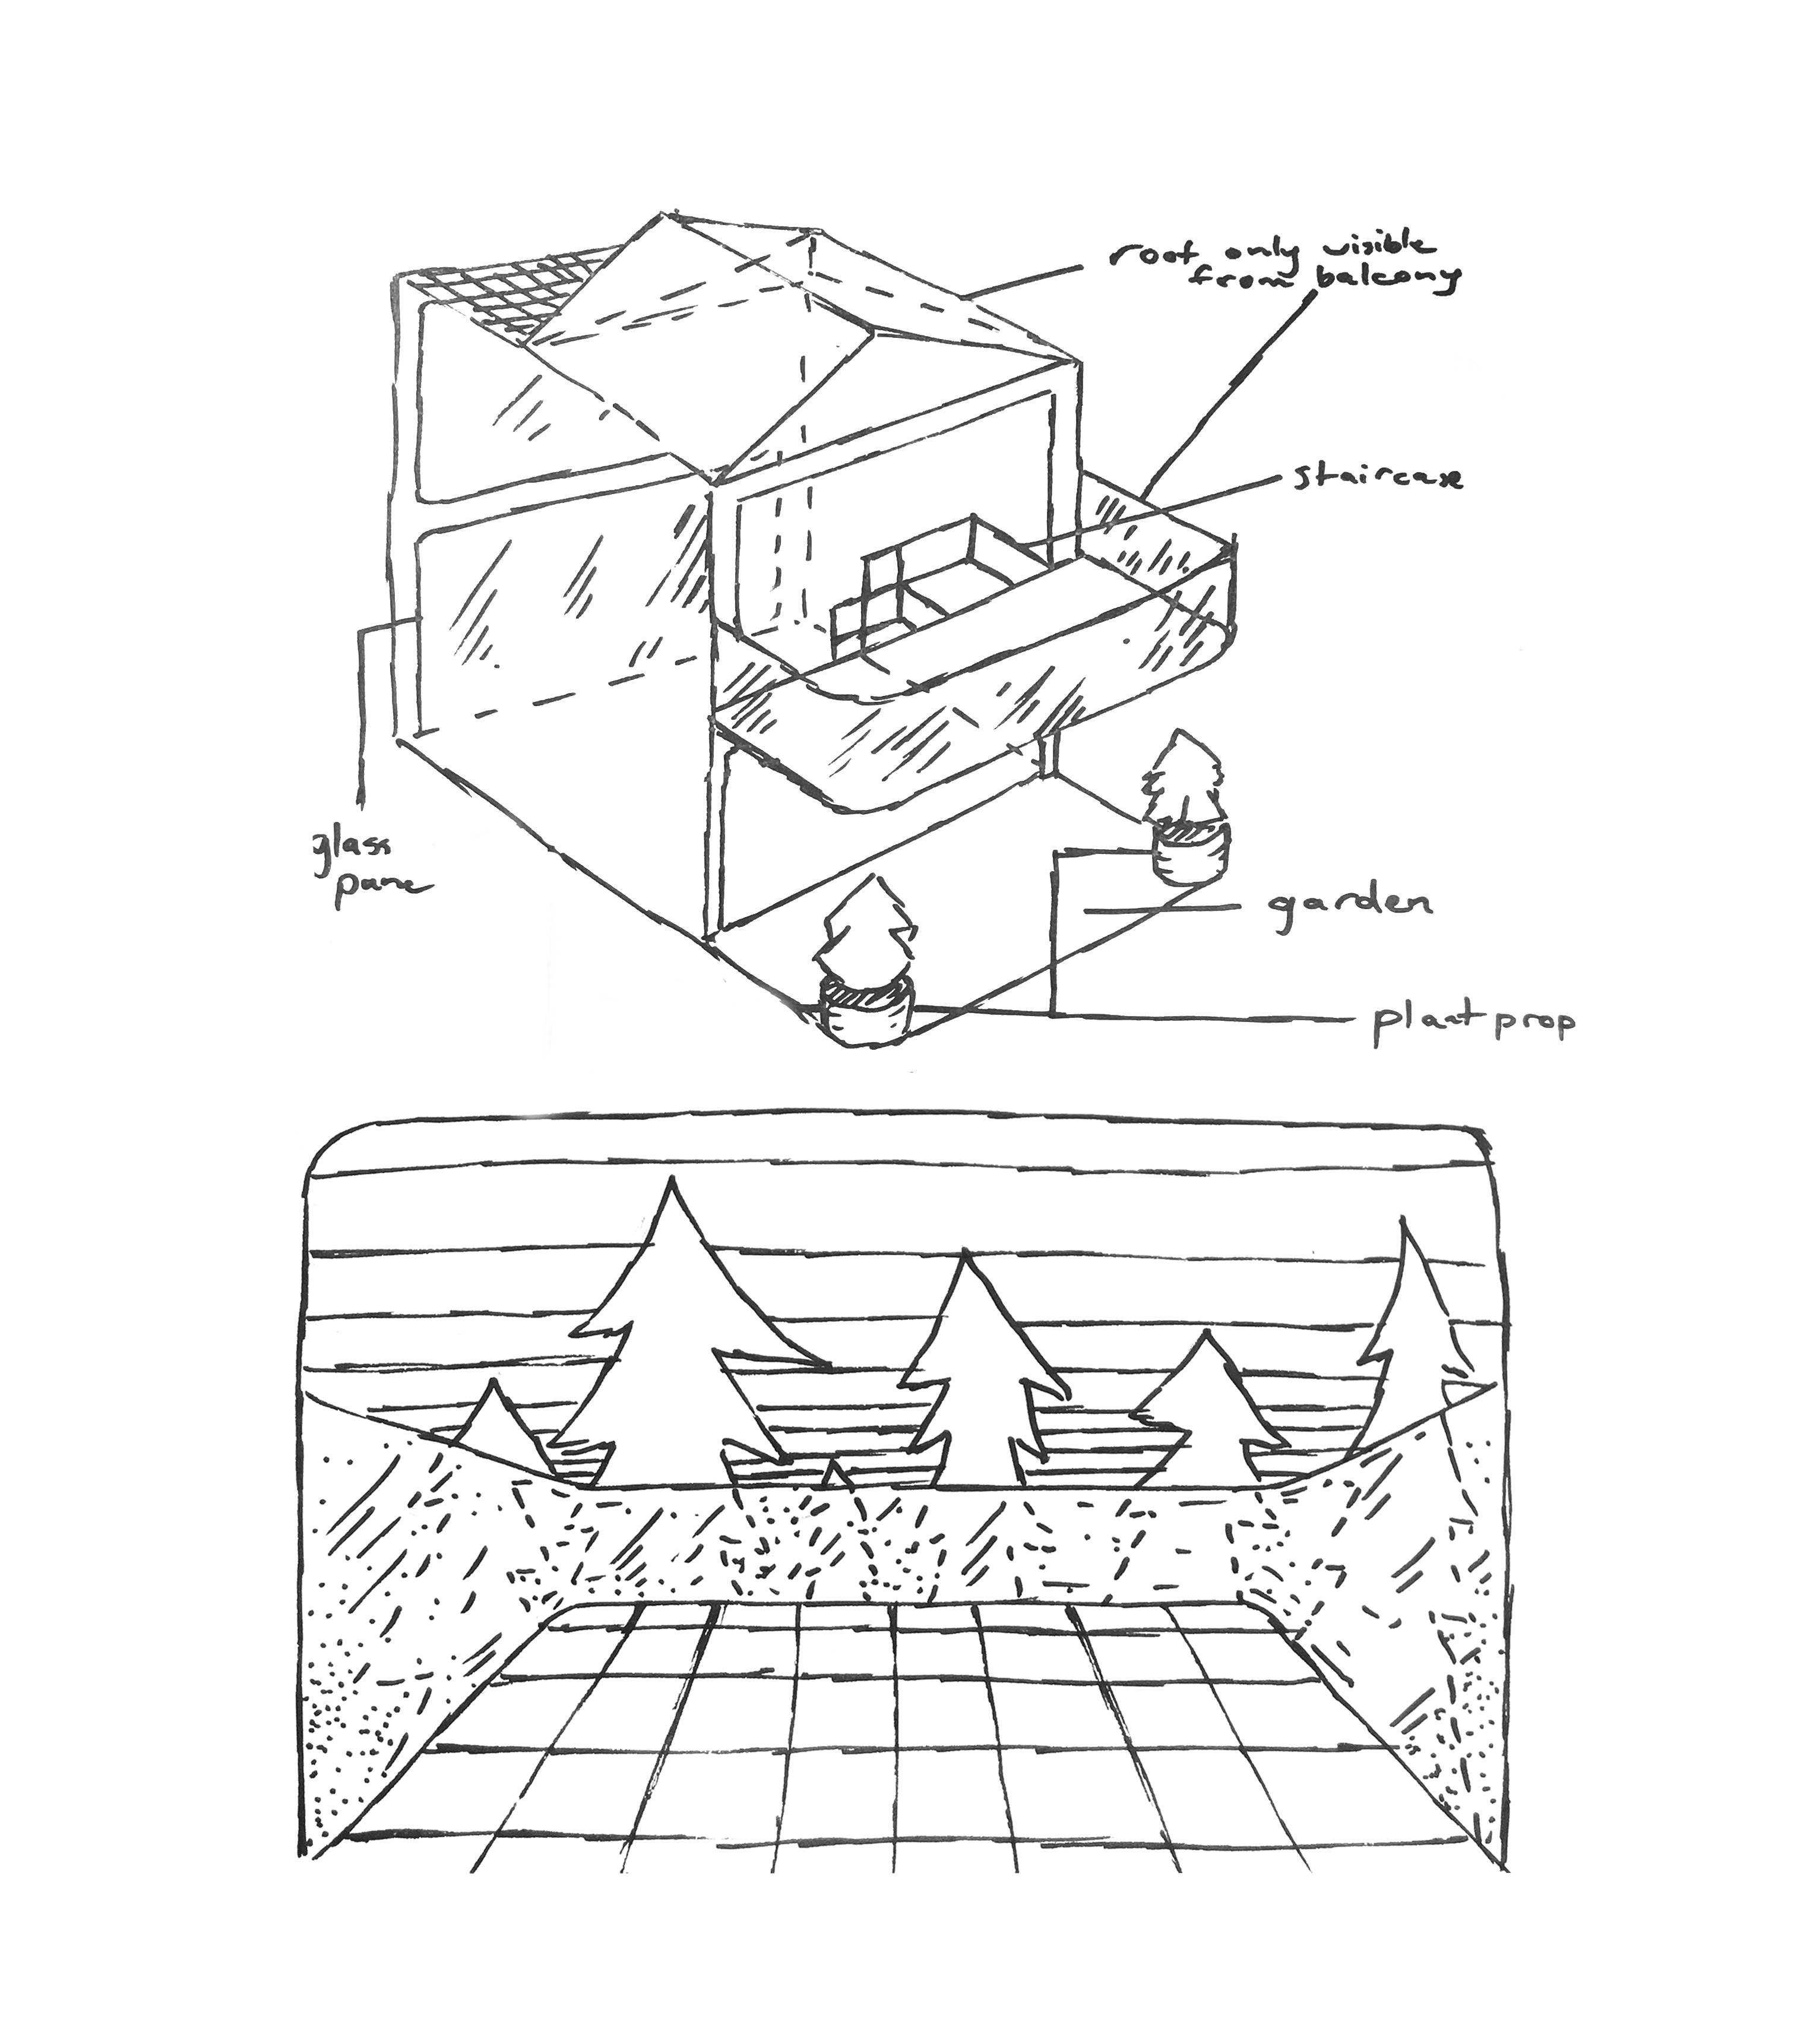 roof only visible
from balcony
staircase
glass
pane
garden
plant prop